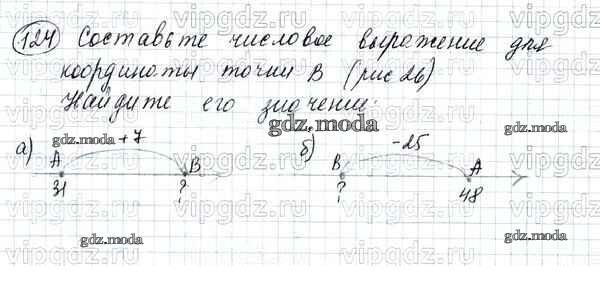 124 Составьте числовое выражение для
координаты точки В (рис 26)
Найдите его значение.
gdz.moda
а) gdz.moda +7 б) -25
А В В А
31 ? ? 48
gdz.moda gdz.moda
vipgdz.ru vipgdz.ru vipgdz.ru vipgdz.ru